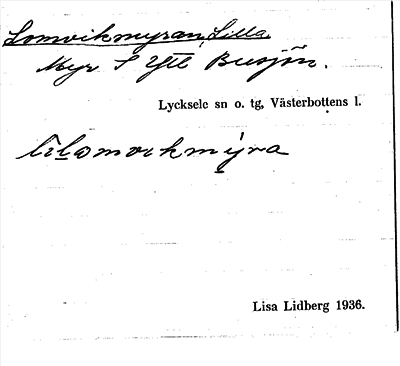 Lomvikmyran, Lilla
Myr S Ytt Busjön.
Lycksele sn o. tg, Västerbottens l.
lilomvikmýra
Lisa Lidberg 1936.